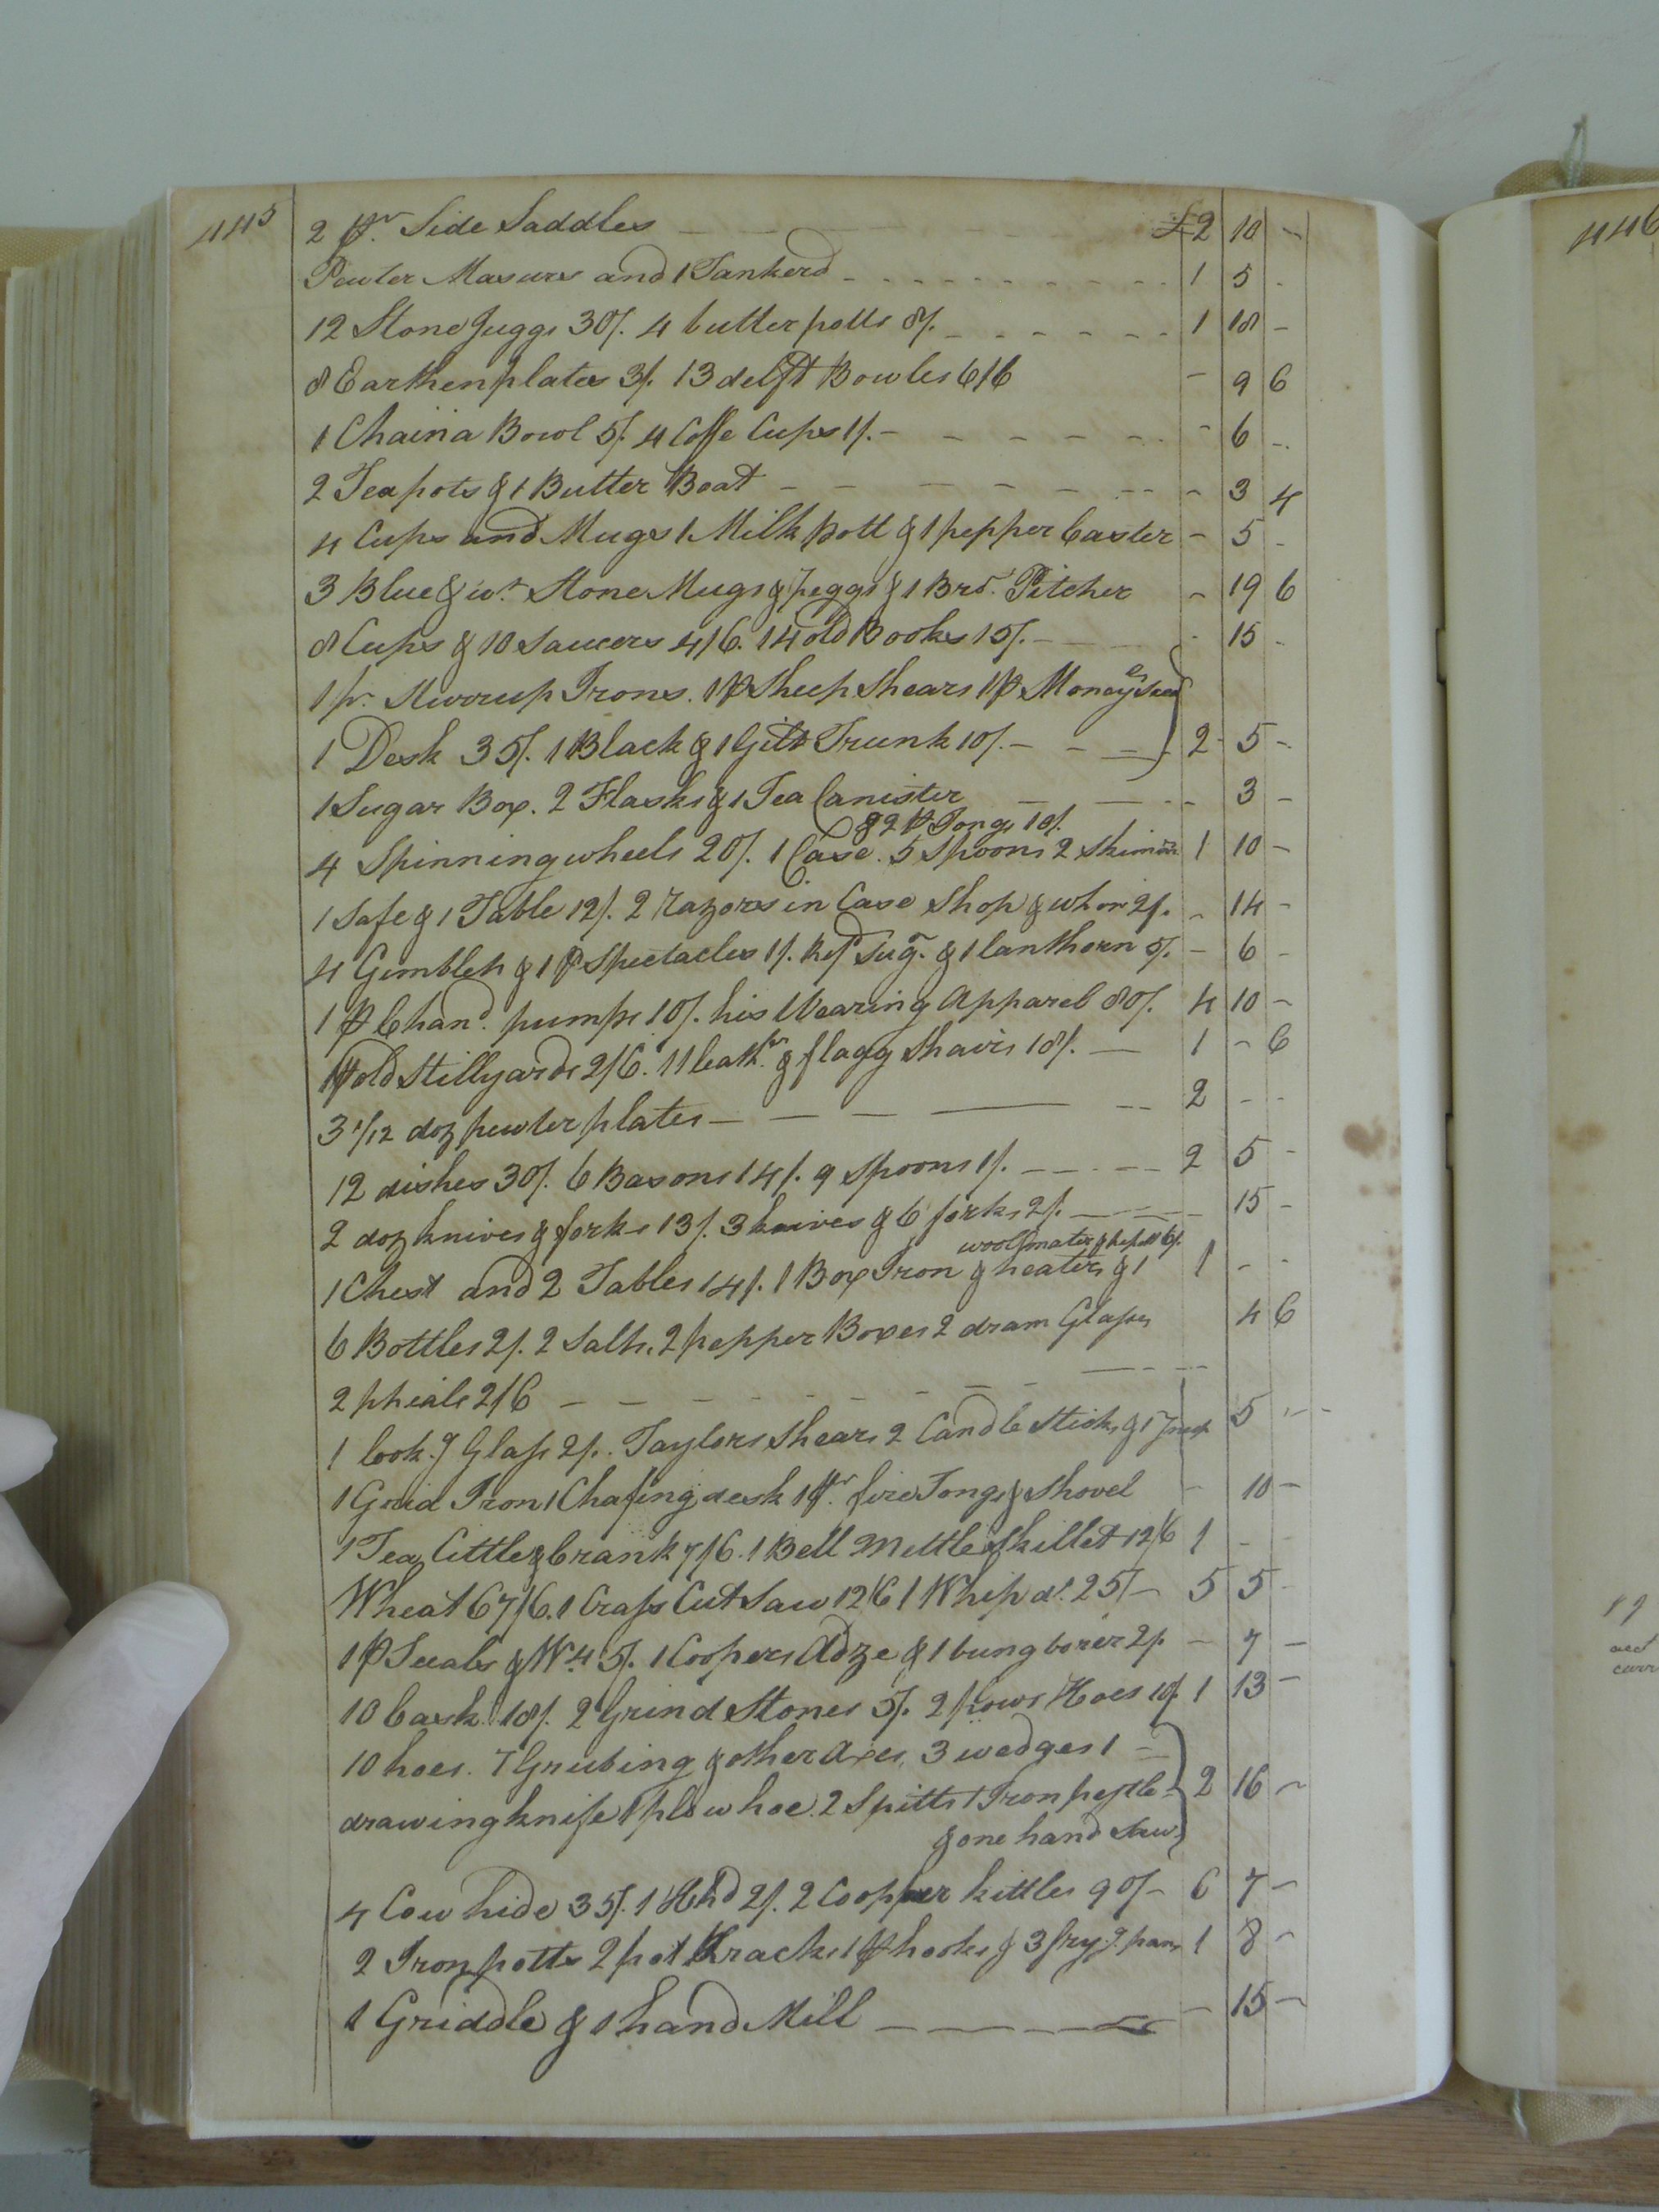 445
2 pr. Side Saddles £2 10 -
Pewter Masures and 1 Tankerd 1 5 -
12 Stone Juggs 30/. 4 butter potts 8/. 1 18 -
8 Earthen plates 3/. 13 delft Bowles 6/6 - 9 6
1 Chaina Bowl 5/. 4 Coffe Cups 1/. - 6 -
2 Teapots & 1 Butter Boat - 3 4
4 Cups and Mugs 1 Milk pott & 1 pepper Caster - 5 -
3 Blue & wt. Stone Mugs & Juggs & 1 Brd. Pitcher - 19 6
8 Cups & 10 Saucers 4/6. 14 old Books 15/. - 15 -
1 pr. Stirrup Irons. 1 p Sheep Shears 1 p Money
1 Desk 35/. 1 Black & 1 Gilt Trunk 10/. 2 5 -
1 Sugar Box. 2 Flasks & 1 Tea Canister - 3 -
& 2 p Tongs 10/.
4 Spinning wheels 20/. 1 Case. 5 Spoons 2 Skimers 1 10 -
1 Safe & 1 Table 12/. 2 razors in Case Shop & 2/. - 14 -
4 Gimblets & 1 p Spectacles 1/. Sugr. & 1 lanthorn 5/. - 6 -
1 p Chand. pumps 10/. his Wearing Apparel 80/. 4 10 -
1 p old Stillyards 2/6. 11 leathr. & flagg Chairs 18/. 1 - 6
3 1/12 doz pewter plates 2 - -
12 dishes 30/. 6 Basons 14/. 9 Spoons 1/. 2 5 -
2 doz knives & forks 13/. 3 knives & 6 forks 2/. 15 -
1 Chest and 2 Tables 14/. 1 Box Iron & heaters & 1 1 - -
6 Bottles 2/. 2 Salts. 2 pepper Boxes 2 dram Glasses 4 6
2 phials 2/6
1 look.g Glass 2/. Taylors Shears 2 Candle Sticks & 1 5 - -
1 Grid Iron 1 Chafing desk 1 pr. fire Tongs & Shovel - 10 -
1 Tea Cittle & Crank 7/6. 1 Bell Mettle Skillet 12/6 1 - -
Wheat 67/6. 1 Crass Cut Saw 12/6 1 Whip do. 25/- 5 5 -
1 p Scales & Wt 5/. 1 Coopers Adze & 1 bung borer 2/. - 7 -
10 Cask 18/. 2 Grind Stones 5/. 2 plows Hoes 10/. 1 13 -
10 hoes. 7 Grubing & other Axes, 3 wedges 1
drawing knife 1 plow hoe. 2 Spitts 1 Iron pestle 2 16 -
& one hand Saw
4 Cow hide 35/. 1 Hhd 2/. 2 Coopper kittles 90/- 6 7 -
2 Iron potts 2 pot Kracks 1 p hooks & 3 fry.g pans 1 8 -
1 Griddle & 1 hand Mill - 15 -
446